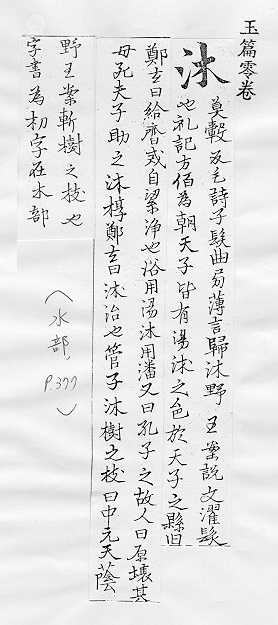 玉篇零卷
沐 莫轂反毛詩子髮曲局薄言歸沐野王案説文濯髮
也礼記方伯為朝天子皆有湯沐之邑於天子之縣内
鄭玄曰給齊戒自潔淨也浴用湯沐用潘又曰孔子之故人曰原壤其
母死夫子助之沐椁鄭玄曰沐治也管子沐樹之枝日中无天蔭
野王案斬樹之枝也
字書為㓭字在木部
(水部, P.377)